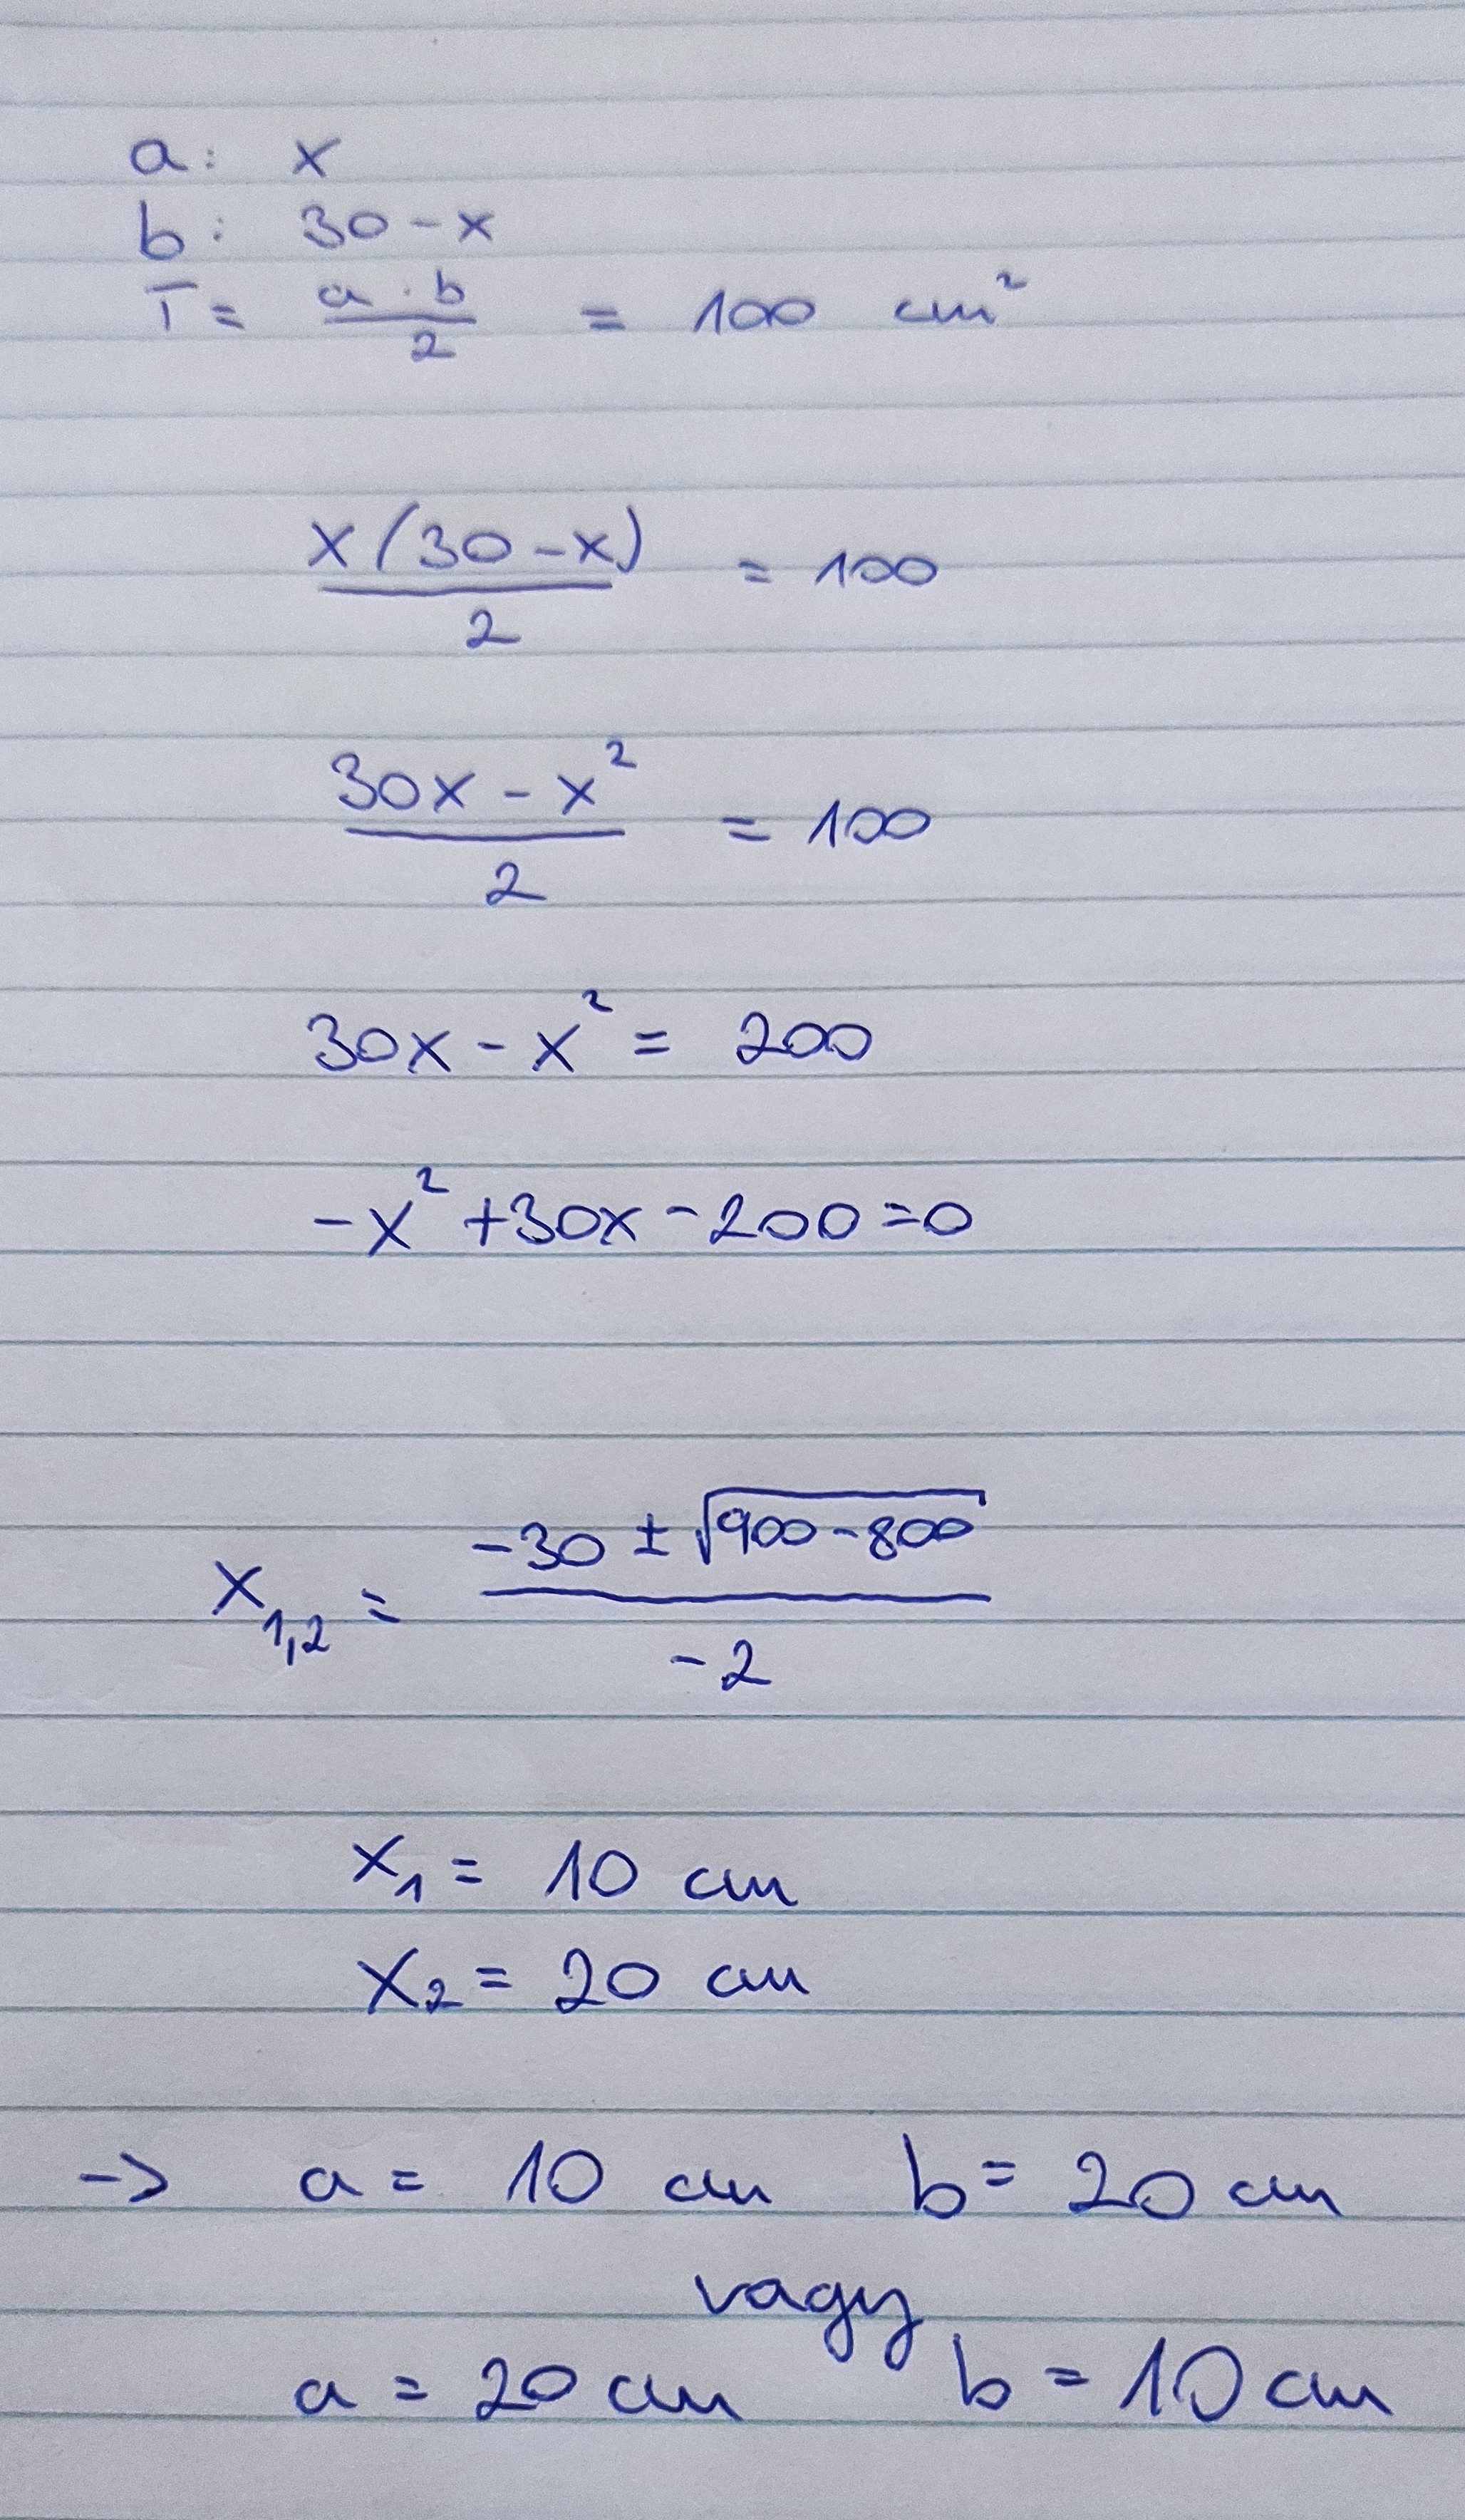 a: x
b: 30 - x
T = a · b / 2 = 100 cm²
x(30 - x) / 2 = 100
30x - x² / 2 = 100
30x - x² = 200
-x² + 30x - 200 = 0
x₁,₂ = -30 ± √900 - 800 / -2
x₁ = 10 cm
x₂ = 20 cm
-> a = 10 cm b = 20 cm
vagy
a = 20 cm b = 10 cm